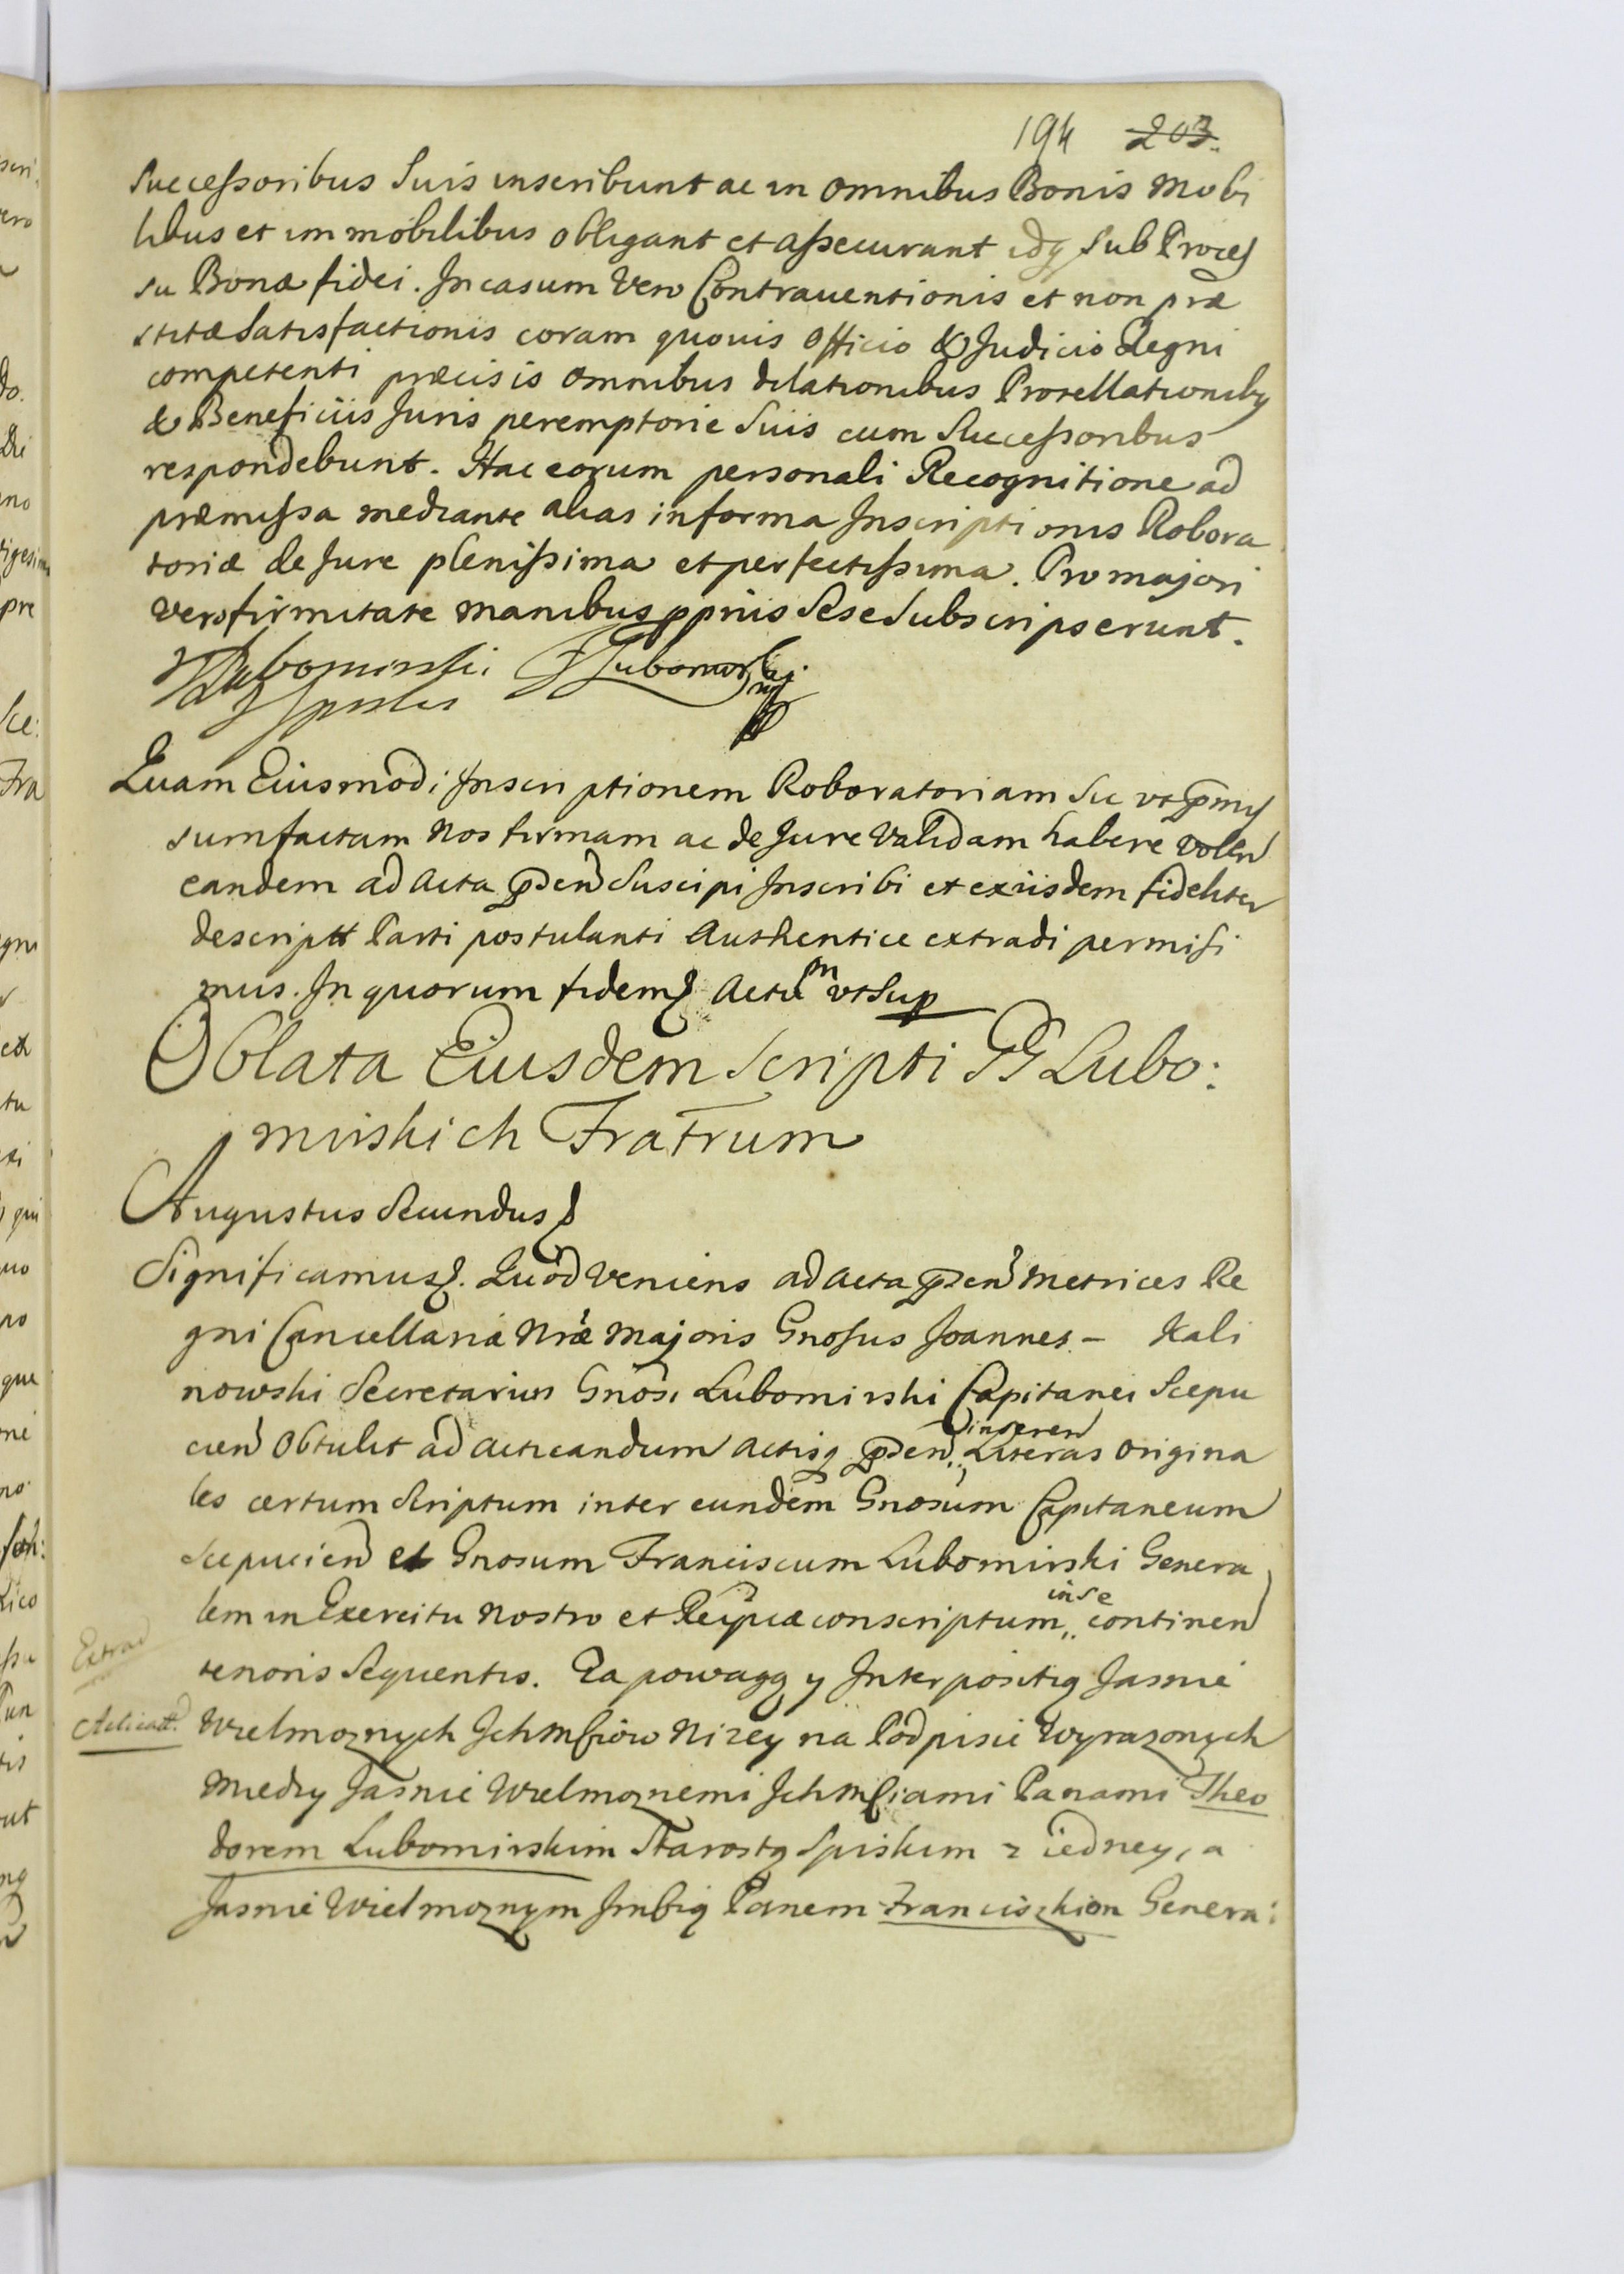 194 203.
Successoribus Suis inscribunt ac in omnibus Bonis Mobi
libus et immobilibus obligant et assecurant idq sub Proces
su Bonæ fidei. In casum Vero Contrauentionis et non præ
stitæ Satisfactionis coram quouis Officio & Judicio Regni
competenti præcisis omnibus dilationibus Provellationibq
& Beneficiis Juris peremptorie Suis cum Successoribus
respondebunt. Hac eorum personali Recognitione ad
præmissa mediante alias in forma Inscriptionis Robora
toriæ de Jure plenissima et perfectissima. Pro majori
vero firmitate manibus ppriis Sese Subscripserunt.
Lubomirski Lubomirski
Quam Eiusmodi Inscriptionem Roboratoriam Sic vt pmis
sum factam Nos firmam ac de Jure Validam habere volen
eandem ad Acta pden Suscipi Inscribi et ex iisdem fideliter
descriptt Parti postulanti Authentice extradi permisi
mus. In quorum fidem Actum vt Sup
Oblata Eiusdem Scripti GG Lubo:
mirskich Fratrum
Augustus Secundus
Significamus. Quod Veniens ad Acta pden Metrices Re
gni Cancellariæ Nræ Majoris Gnosus Joannes - Kali
nowski Secretarius Gnosi Lubomirski Capitanei Scepu
cien Obtulit ad acticandum Actisq pden inseren Literas origina
les certum Scriptum inter eundem Gnosum Capitaneum
Scepucien et Gnosum Franciscum Lubomirski Genera
lem in Exercitu Nostro et Reipcæ conscriptum in se continen
tenoris Sequentis. Za powagą y Interpositią Jasnie
Extrad
Wielmoznych Ichmciow Nizey na Podpisie Wyrazonych
Acticatt.
Miedzy Jasnie Wielmoznemi Ichmciami Panami Theo
dorem Lubomirskim Starostą Spiskim z iedney, a
Jasnie Wielmoznym Jmcią Panem Franciszkiem Genera: